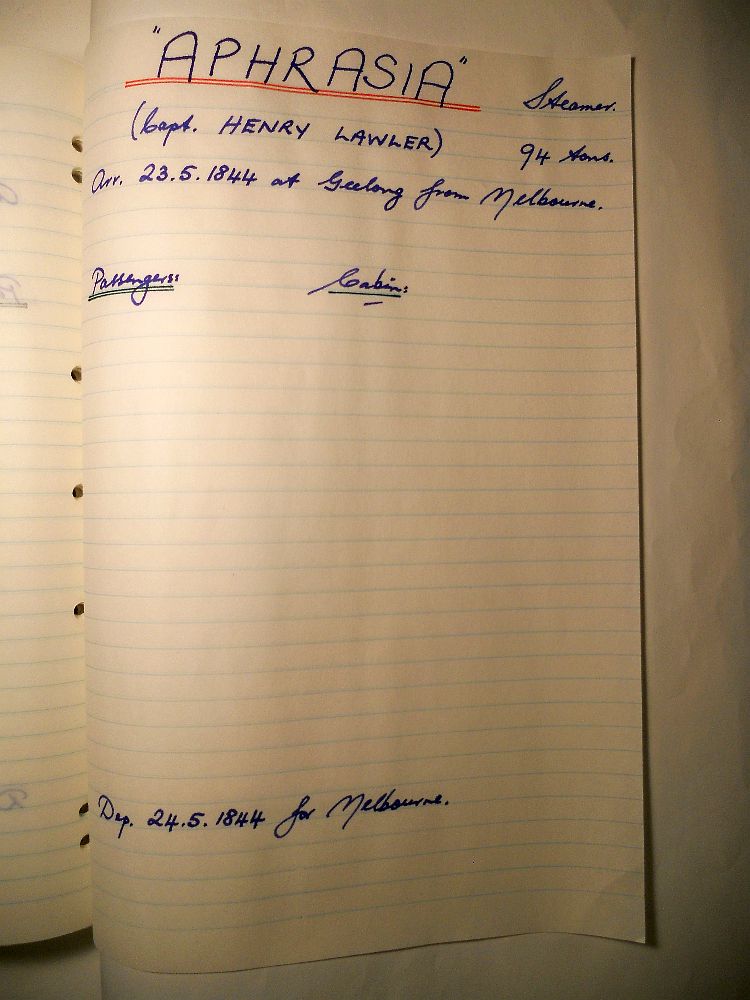 "APHRASIA"
Steamer.
(Capt. HENRY LAWLER)
94 tons.
Arr. 23.5.1844 at Geelong from Melbourne.
Passengers:
Cabin:
Dep. 24.5.1844 for Melbourne.